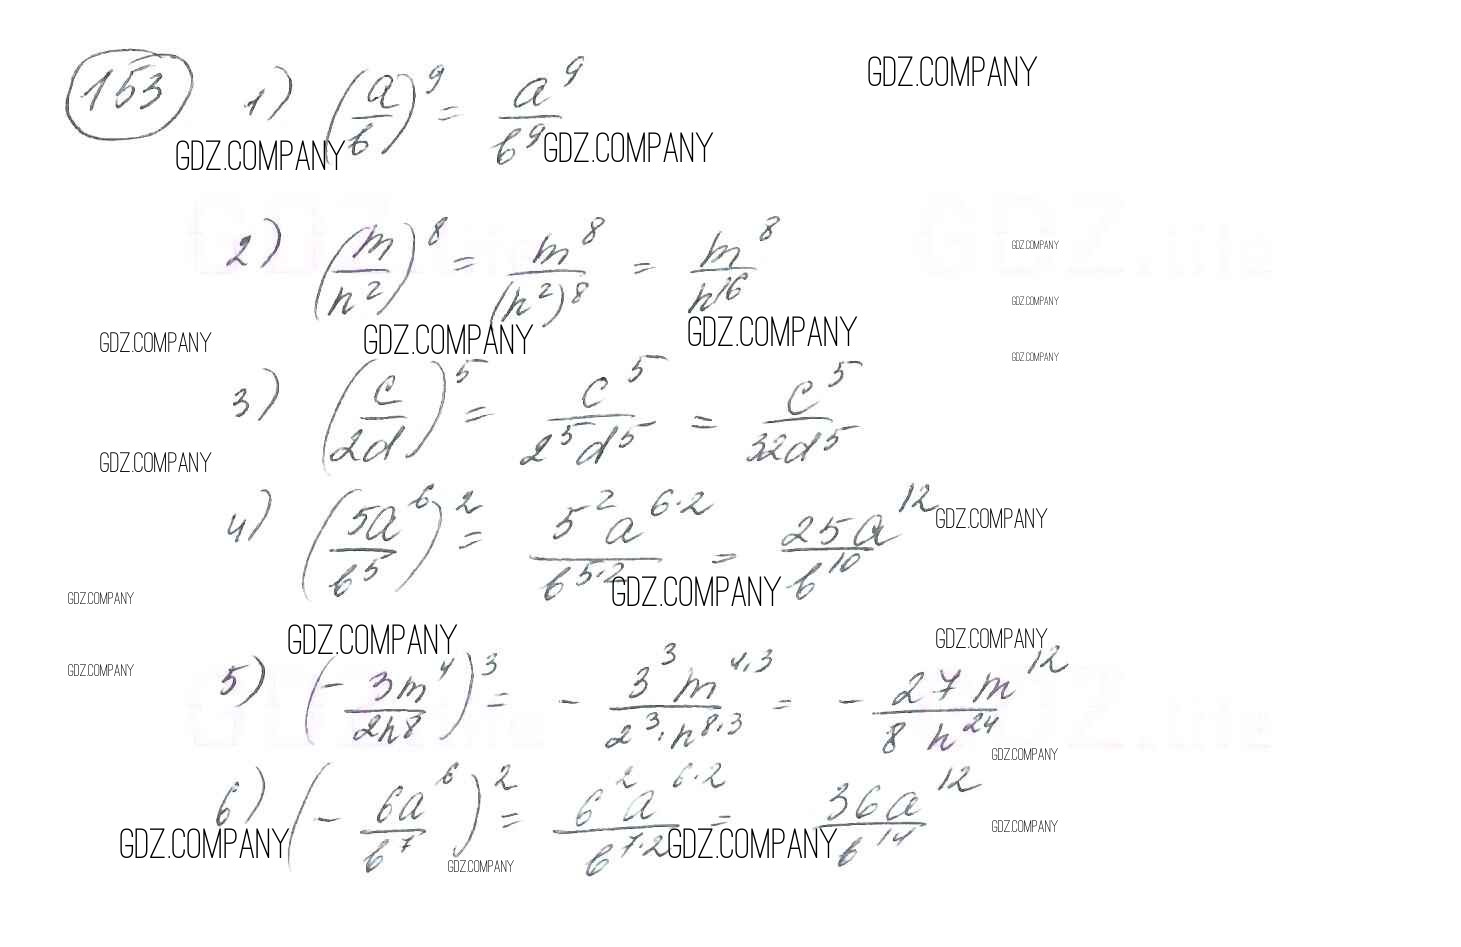 153 1) (a/b)^9 = a^9/b^9
GDZ.COMPANY
GDZ.COMPANY GDZ.COMPANY
2) (m/n^2)^8 = m^8/(n^2)^8 = m^8/n^16
GDZ.COMPANY
GDZ.COMPANY
GDZ.COMPANY GDZ.COMPANY GDZ.COMPANY
GDZ.COMPANY
3) (c/2d)^5 = c^5/2^5d^5 = c^5/32d^5
GDZ.COMPANY
4) (5a^6/b^5)^2 = 5^2a^6·2/b^5·2 = 25a^12/b^10
GDZ.COMPANY
GDZ.COMPANY GDZ.COMPANY
GDZ.COMPANY GDZ.COMPANY
GDZ.COMPANY
5) (-3m^4/2n^8)^3 = -3^3m^4·3/2^3·n^8·3 = -27m^12/8n^24
GDZ.COMPANY
6) (-6a^6/b^7)^2 = 6^2a^6·2/b^7·2 = 36a^12/b^14
GDZ.COMPANY GDZ.COMPANY GDZ.COMPANY
GDZ.COMPANY